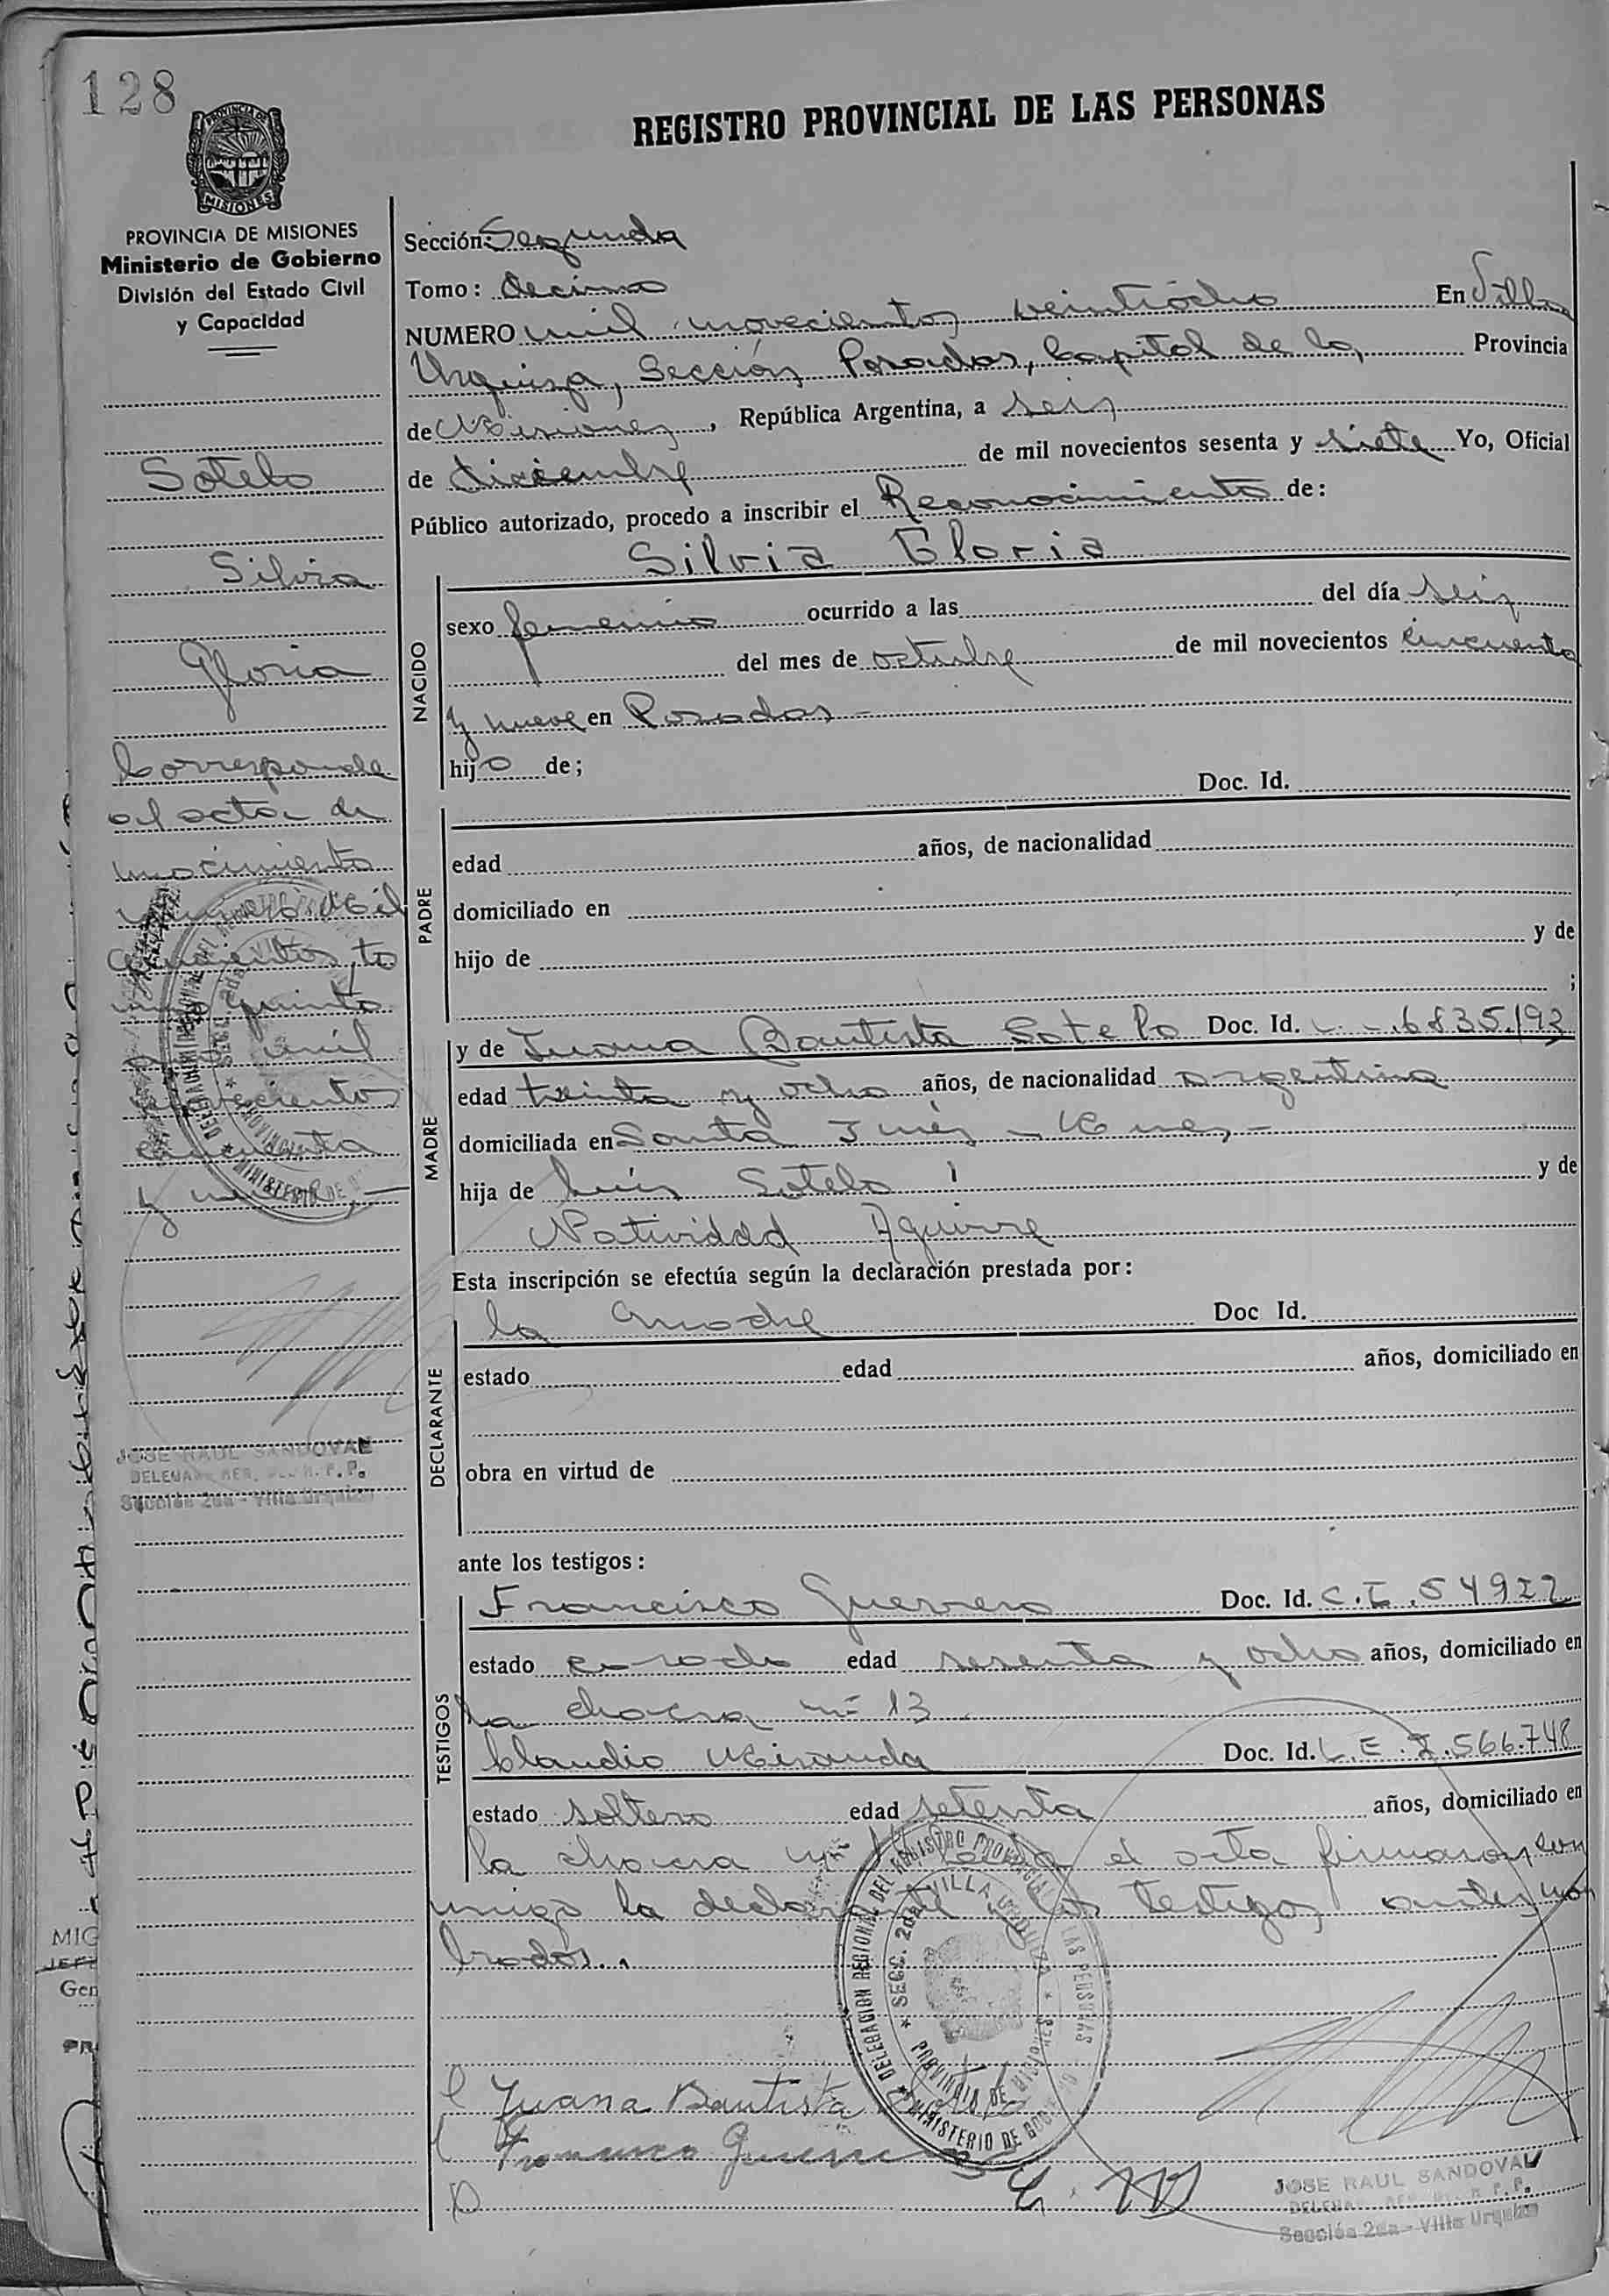 128
REGISTRO PROVINCIAL DE LAS PERSONAS
PROVINCIA DE MISIONES
Ministerio de Gobierno
División del Estado Civil
y Capacidad
Sotelo
Silvia
Gloria
Corresponde
al acta de
nacimiento
numero mil
quinto
mil
novecientos
cincuenta
y nueve
JOSE RAUL SANDOVAL
Sección 2da - Villa Urquiza
Sección: Segunda
Tomo: decimo
NUMERO mil novecientos veintiocho En Villa
Urquiza, Sección Posadas, Capital de la Provincia
de Misiones, República Argentina, a seis
de diciembre de mil novecientos sesenta y siete Yo, Oficial
Público autorizado, procedo a inscribir el Reconocimiento de:
Silvia Gloria
NACIDO
sexo femenino ocurrido a las del día seis
del mes de octubre de mil novecientos cincuenta
y nueve en Posadas -
hijo de;
Doc. Id.
PADRE
edad años, de nacionalidad
domiciliado en
hijo de y de
;
MADRE
y de Juana Bautista Sotelo Doc. Id. L - 6835.193
edad treinta y ocho años, de nacionalidad argentina
domiciliada en Santa Inés -
hija de Luis Sotelo y de
Natividad Aguirre
Esta inscripción se efectúa según la declaración prestada por:
DECLARANTE
la madre Doc Id.
estado edad años, domiciliado en
obra en virtud de
ante los testigos:
TESTIGOS
Francisco Guerrero Doc. Id. C.I. 54922
estado casado edad sesenta y ocho años, domiciliado en
la chacra nº 13
Claudio Miranda Doc. Id. L.E. 7.566.748
estado soltero edad setenta años, domiciliado en
la chacra el acta firmaron con
migo la declarante los testigos antes nom
brados..
DELEGACION REGIONAL DEL REGISTRO PROVINCIAL DE LAS PERSONAS
SECC. 2da VILLA URQUIZA
PROVINCIA DE MISIONES
MINISTERIO DE GOBIERNO
Juana Bautista Sotelo
Francisco Guerrero
C. M
JOSE RAUL SANDOVAL
Sección 2da - Villa Urquiza